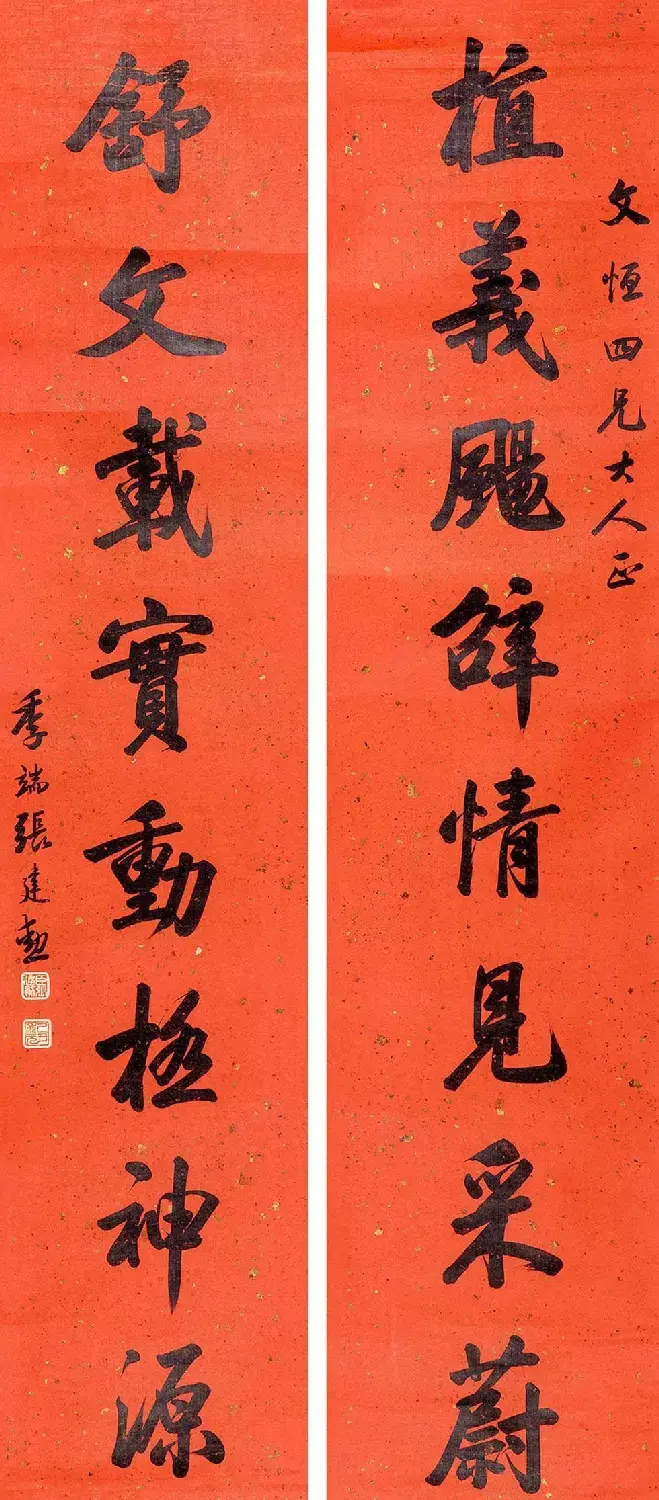 文恒四兄大人正
植義颺辝情見采蔚
舒文載實動極神源
季端張建勳